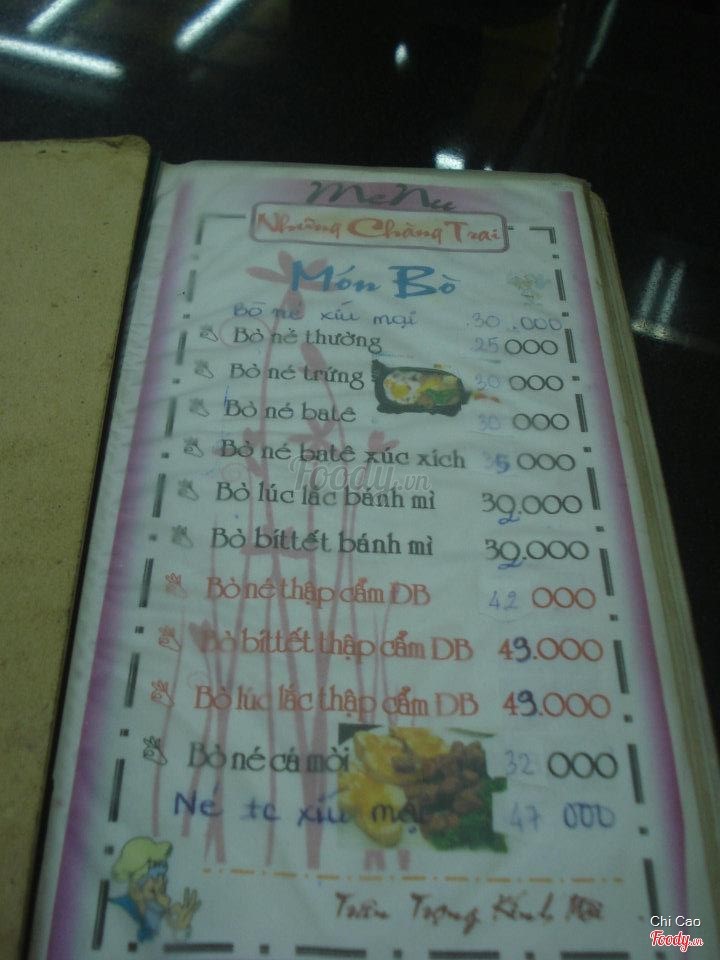 MeNu
Những Chàng Trai
Món Bò
Bò né xíu mại 30.000
Bò né thường 25 000
Bò né trứng 30 000
Bò né batê 30 000
Bò né batê xúc xích 35 000
Bò lúc lắc bánh mì 32.000
Bò bíttết bánh mì 32.000
Bò né thập cẩm ĐB 42 000
Bò bíttết thập cẩm ĐB 49.000
Bò lúc lắc thập cẩm ĐB 49.000
Bò né cá mòi 32 000
Né tc xíu mại 47 000
Trân Trọng Kính Mời
Foody.vn
Chi Cao
Foody.vn